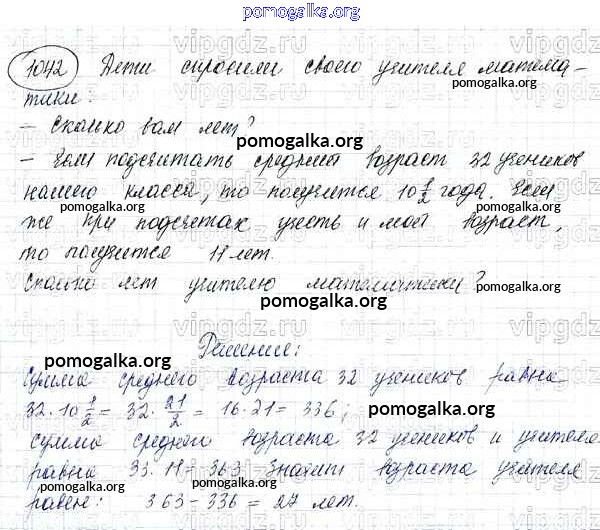 pomogalka.org
1042 Дети спросили своего учителя матема-
тики:
- Сколько вам лет?
pomogalka.org
- Если подсчитать средний возраст 32 учеников
нашего класса, то получится 10 1/2 года. Если
pomogalka.org pomogalka.org
же при подсчетах учесть и мой возраст,
то получится 11 лет.
Сколько лет учителю математики?
pomogalka.org
pomogalka.org
Решение:
pomogalka.org
Сумма среднего возраста 32 учеников равна
32·10 1/2 = 32·21/2 = 16·21 = 336;
pomogalka.org
сумма среднего возраста 32 учеников и учителя
равна 33·11 = 363. Значит возраст учителя
pomogalka.org
равен: 363-336 = 27 лет.
pomogalka.org